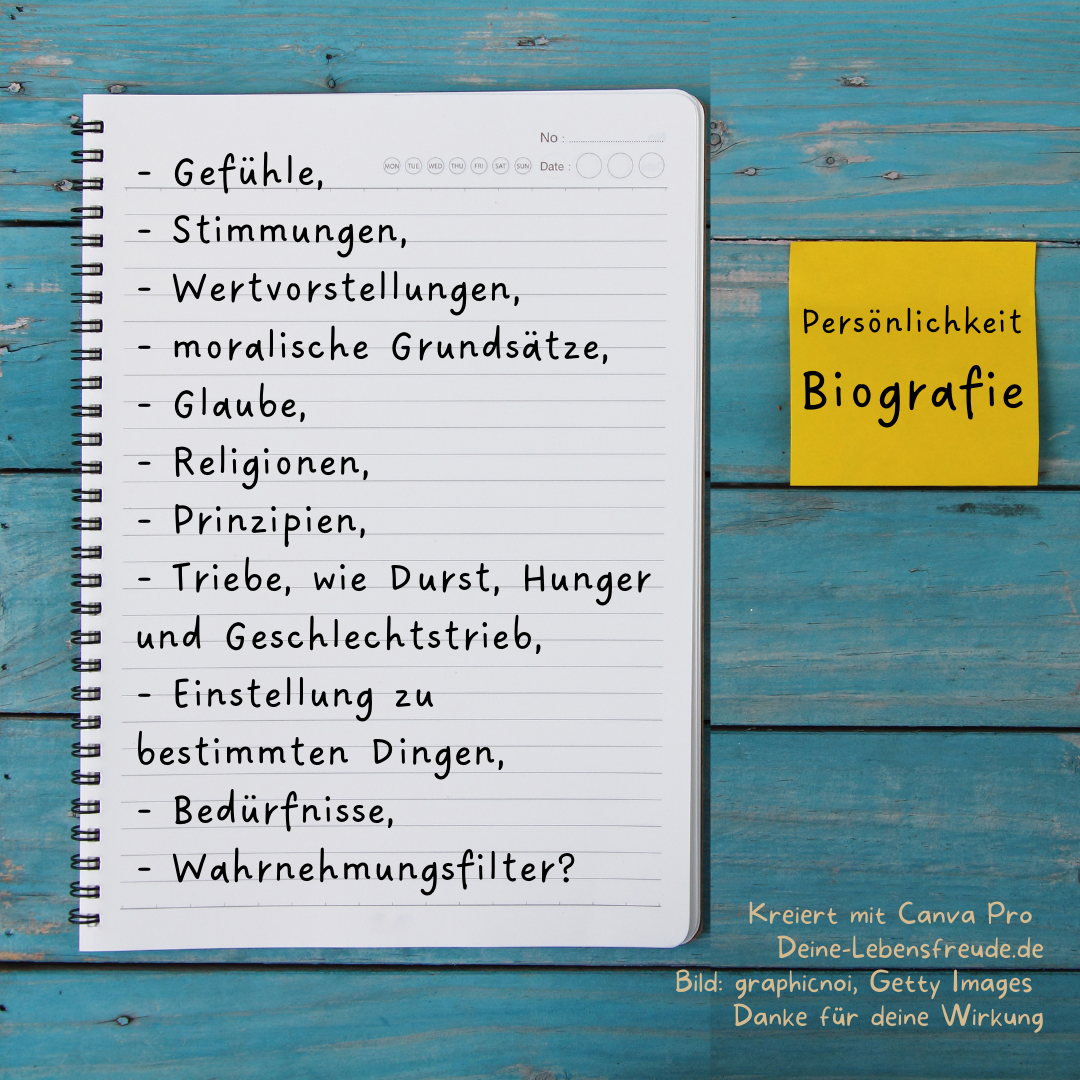 No :
MON TUE WED THU FRI SAT SUN Date :
- Gefühle,
- Stimmungen,
- Wertvorstellungen,
- moralische Grundsätze,
- Glaube,
- Religionen,
- Prinzipien,
- Triebe, wie Durst, Hunger
und Geschlechtstrieb,
- Einstellung zu
bestimmten Dingen,
- Bedürfnisse,
- Wahrnehmungsfilter?
Persönlichkeit
Biografie
Kreiert mit Canva Pro
Deine-Lebensfreude.de
Bild: graphicnoi, Getty Images
Danke für deine Wirkung